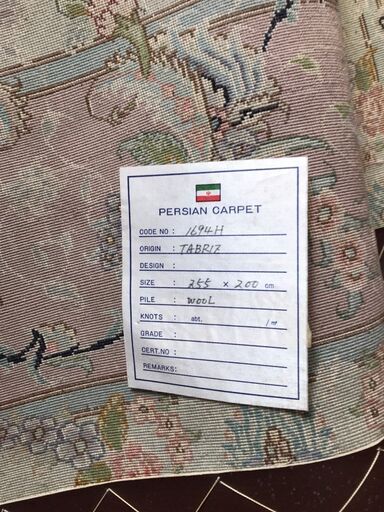 PERSIAN CARPET
CODE NO : 1694H
ORIGIN : TABRIZ
DESIGN :
SIZE : 255 × 200 cm
PILE : WOOL
KNOTS : abt. / ㎡
GRADE :
CERT.NO :
REMARKS: